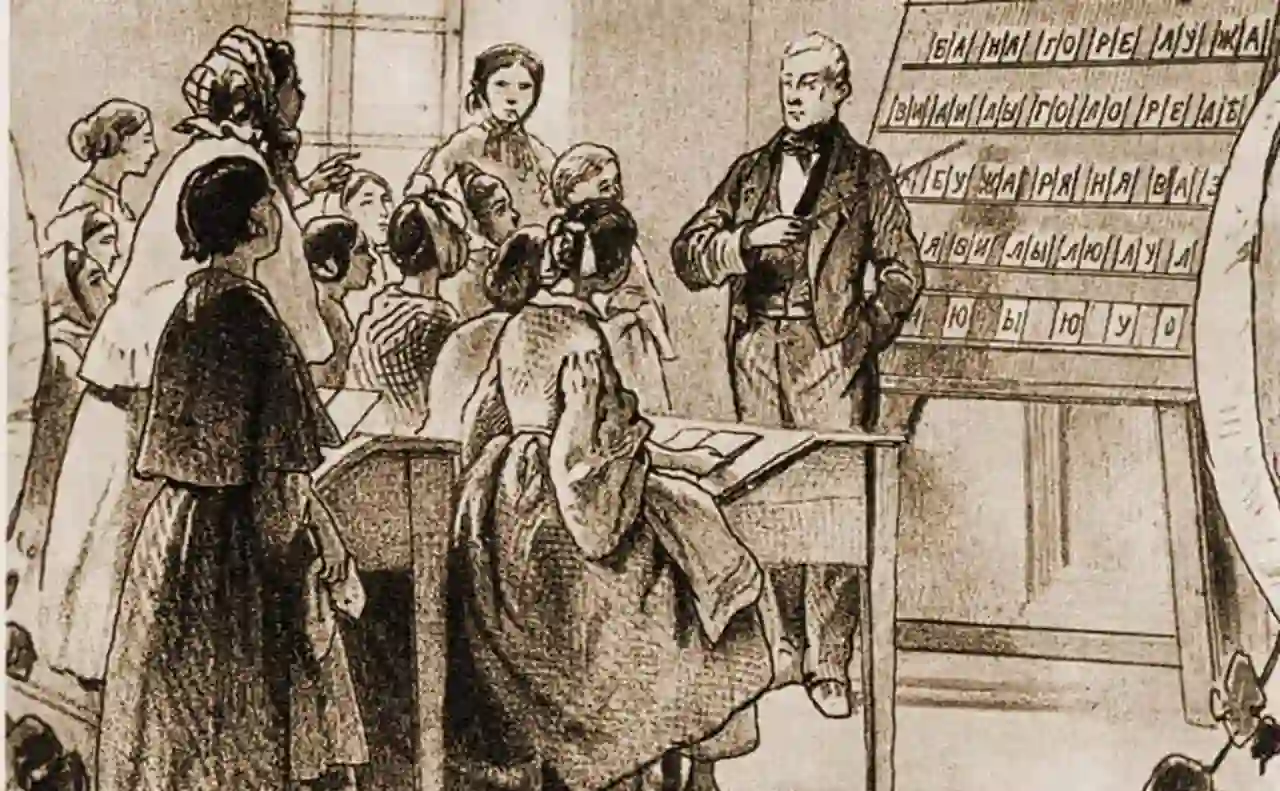 БА НА ГО РЕ ЛУ ЖА
ВИ ДИ ЛЫ ГО ЛО РЕ ДБ
БУ ЖА РЯ НЯ ВА З
ЯВИ ЛЫ ЛЮ ЛУ Л
Ю Ы Ю У О